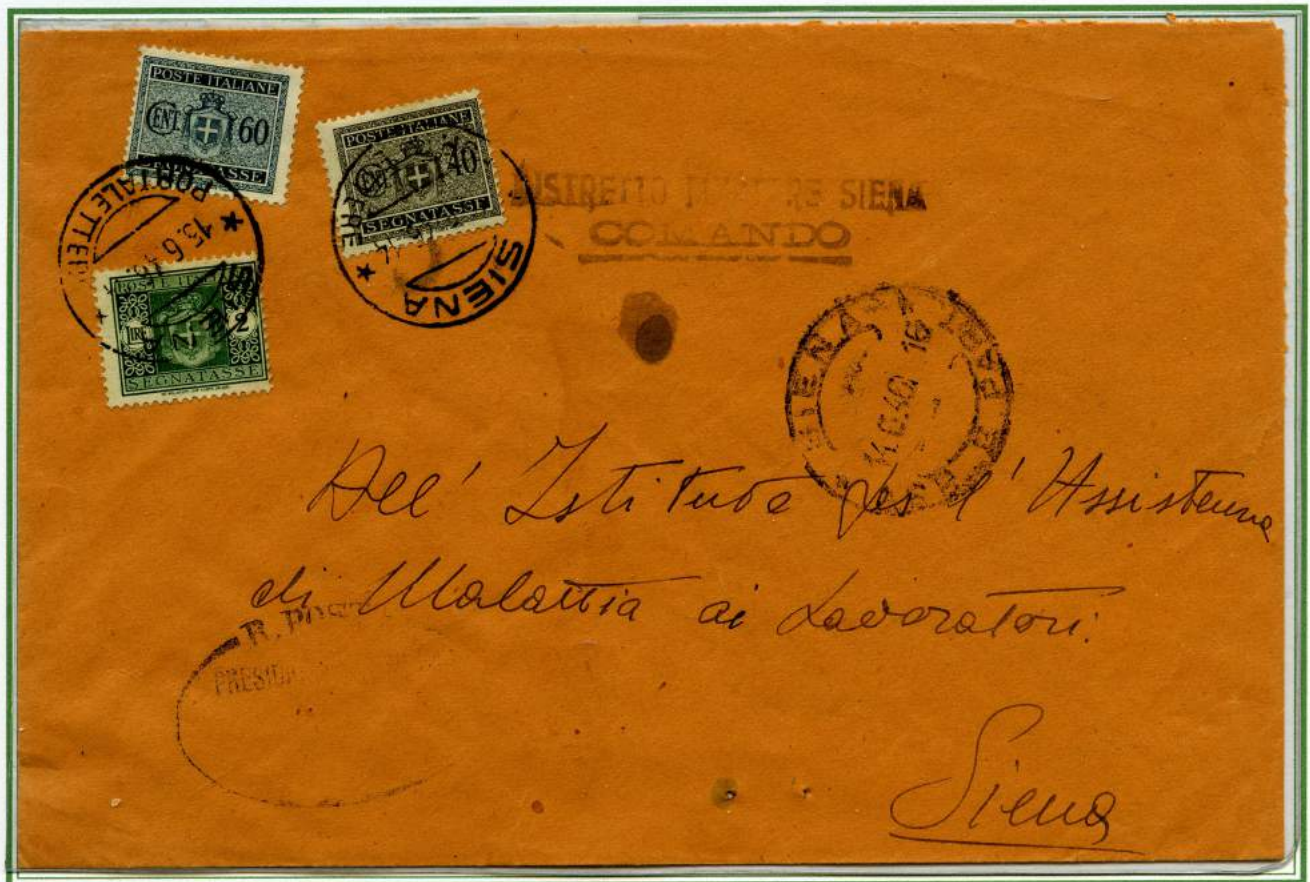 POSTE ITALIANE
CENT. 60
SEGNATASSE
POSTE ITALIANE
CENT. 40
SEGNATASSE
POSTE ITALIANE
LIRE 2
SEGNATASSE
PORTALETTERE
15.6.46
SIENA
DISTRETTO MILITARE SIENA
COMANDO
SIENA
16
All' Istituto per l' Assistenza
di Malattia ai Lavoratori.
R. POSTE
Siena